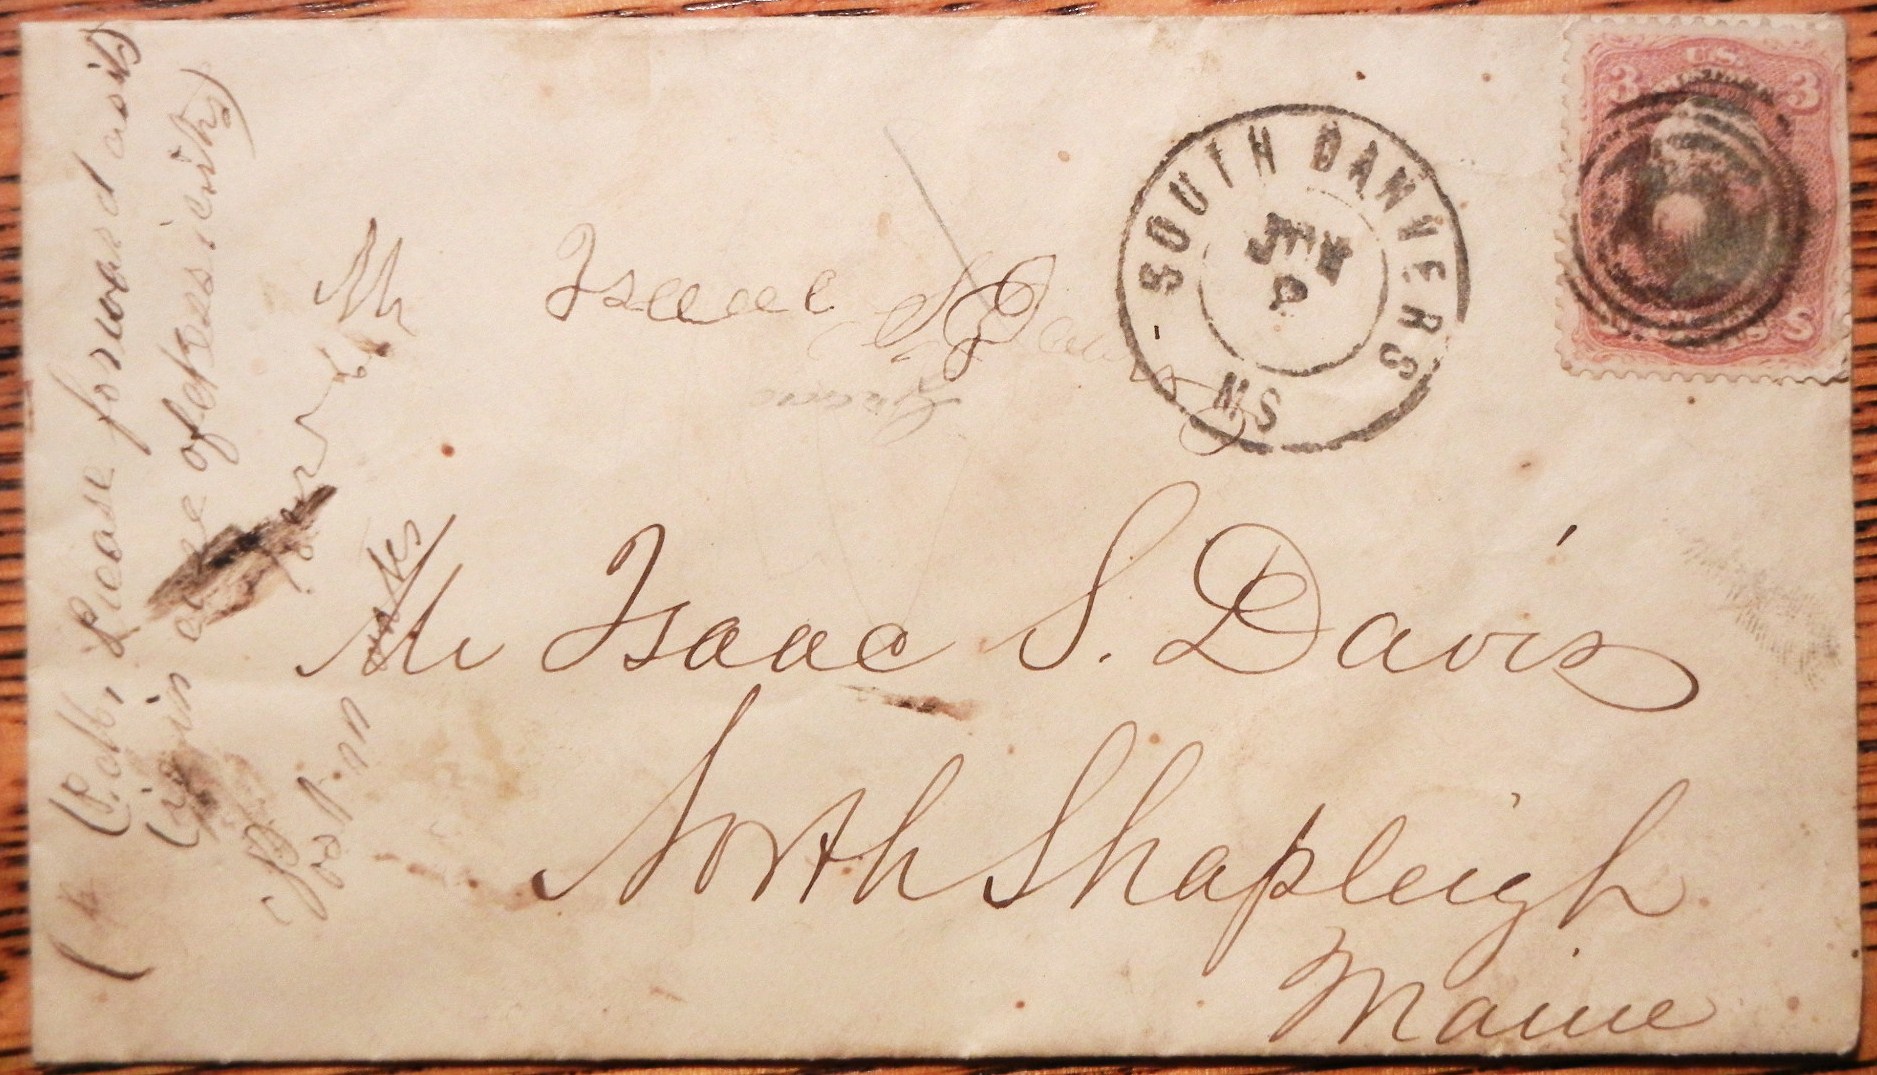 Please forward as it
is in care of
Boston
Mr Isaac S. Davis
SOUTH DANVERS MS
JUN
U.S.
3 3
Mr Isaac S. Davis
North Shapleigh
Maine